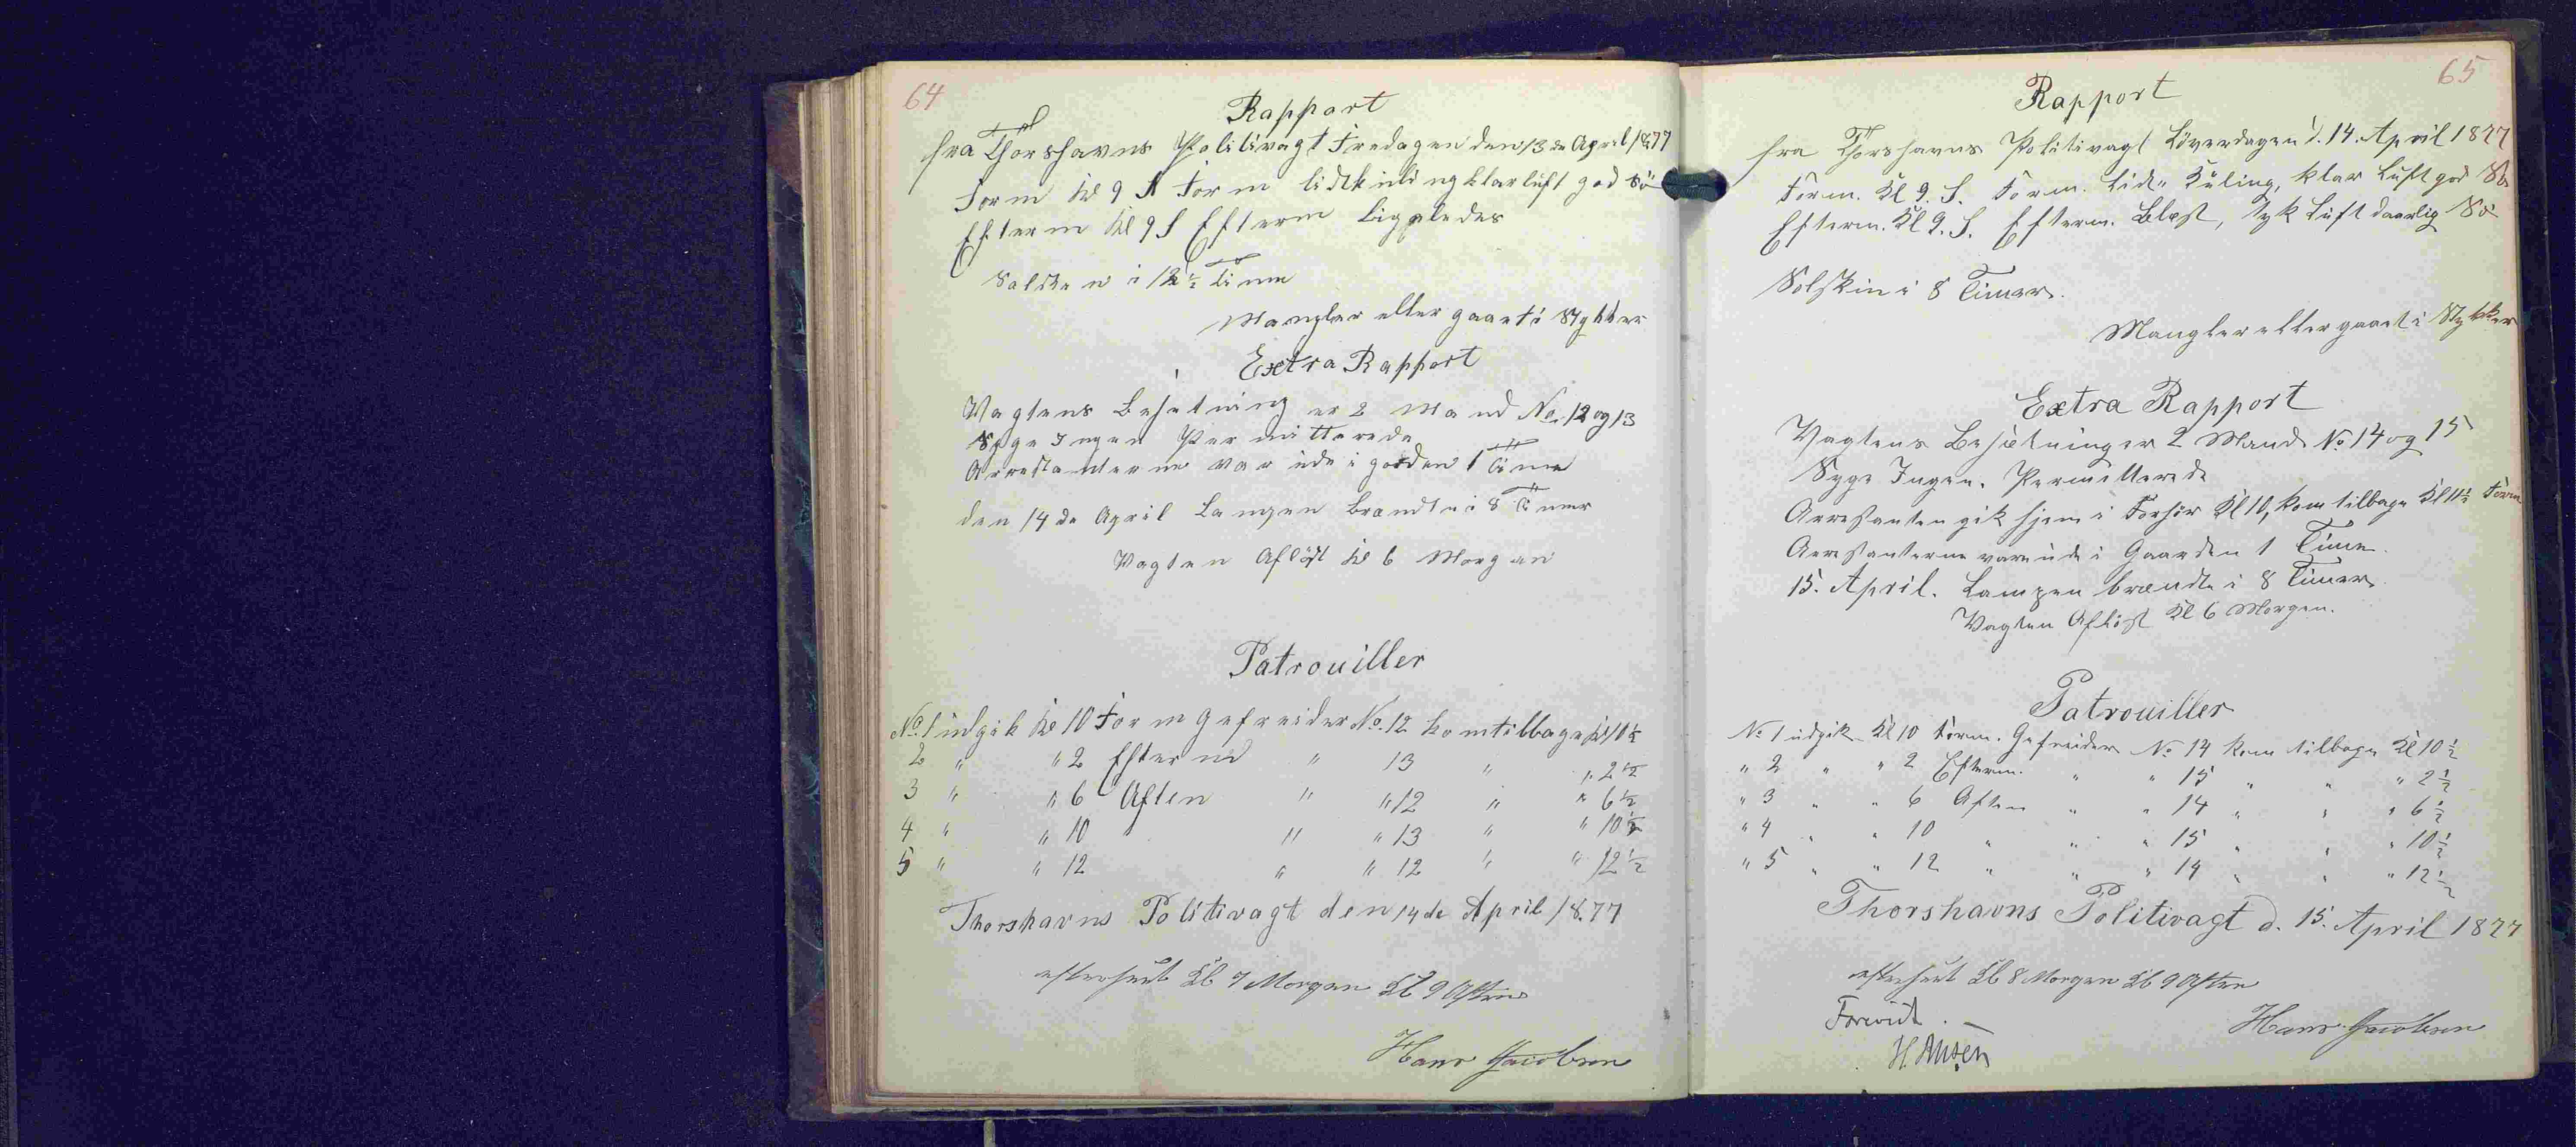 64
Rapport
fra Thorshavns Politivagt Fredagen den 13de April 1877
Form Kl 9 S Form lidt kuling klar luft god Sö
Efterm Kl 9 S Efterm ligeledes
Solsken i 12½ Time
Mangler eller gaaet i Stykker
Extra Rapport
Vagtens Besetning er 2 Mand No. 12 og 13
Syge Ingen Permitterede
Arrestanterne var ude i gorden 1 Time
den 14de April Lampen Brændte i 8 Timer
Vagten Aflöst Kl 6 Morgen
Patrouiller
No. 1 udgik Kl 10 Form Gefreider No. 12 kom tilbage Kl 10½
2 " " 2 Efterm " 13 " " 2½
3 " " 6 Aften " " 12 " " 6½
4 " " 10 " " 13 " " 10½
5 " " 12 " " 12 " " 12½
Thorshavns Politivagt den 14de April 1877
efterseet Kl 7 Morgen Kl 9 Aften
Hans Jacobsen
65
Rapport
fra Thorshavns Politivagt Löverdagen d. 14. April 1877
Form. Kl 9. S. Form. Lidt Kuling, klar Luft god Sö
Efterm. Kl 9. S. Efterm. Blæst, tyk Luft daarlig Sö
Solskin i 8 Timer.
Mangler eller gaaet i Stykker
Extra Rapport
Vagtens Besætning er 2 Mand No 14 og 15
Syge Ingen. Permitterede
Arrestanten gik hjem i Forhör Kl 10, kom tilbage Kl 11½ Form
Arrestanterne vare ude i Gaarden 1 Time.
15. April. Lampen brændte i 8 Timer.
Vagten Aflöst Kl 6 Morgen.
Patrouiller
No 1 udgik Kl 10 Form. Gefreider No 14 kom tilbage Kl 10½
" 2 " " 2 Efterm. " " 15 " " " 2½
" 3 " " 6 Aften " " 14 " " " 6½
" 4 " " 10 " " " 15 " " " 10½
" 5 " " 12 " " " 14 " " " 12½
Thorshavns Politivagt d. 15. April 1877
efterseet Kl 8 Morgen Kl 9 Aften
Hans Jacobsen
Forevist.